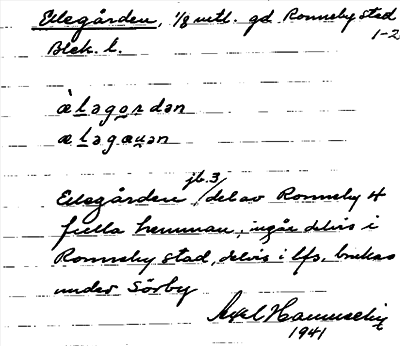 Ellegården, 1/8 mtl. gd Ronneby stad
1-2
Blek. l.
æ̀lagordan
ælagauan
Ellegården jb. 3/ del av Ronneby 4
fjella hemman, ingår delvis i
Ronneby stad, delvis i lfs, brukas
under Sörby
Axel
1941